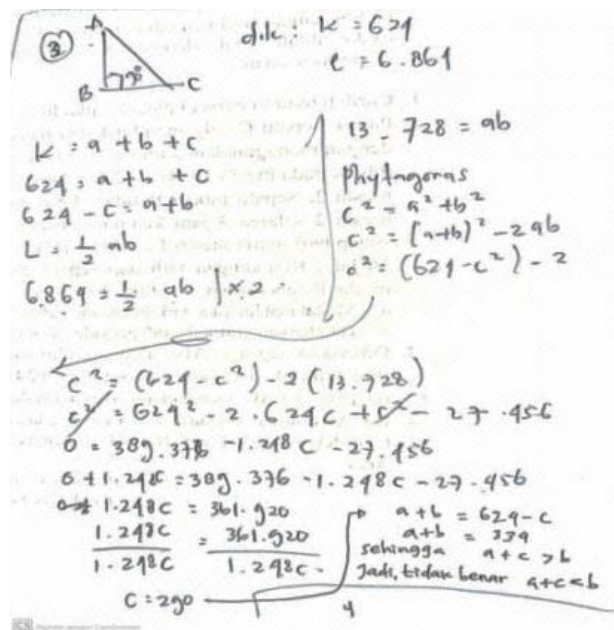 3
A
B 90° C
dik : K = 624
L = 6.864
K = a + b + c
624 = a + b + c
624 - c = a + b
L = 1/2 ab
6.864 = 1/2 ab | × 2
13. 728 = ab
Phytagoras
c² = a² + b²
c² = (a+b)² - 2ab
c² = (624 - c²) - 2
c² = (624 - c²) - 2 (13.728)
c² = 624² - 2 . 624c + c² - 27.456
0 = 389.376 - 1.248c - 27.456
0 + 1.248c = 389.376 - 1.248c - 27.456
1.248c = 361.920
1.248c = 361.920
1.248c 1.248c
c = 290
a+b = 624 - c
a+b = 334
sehingga a+c > b
Jadi, tidak benar a+c < b
CS